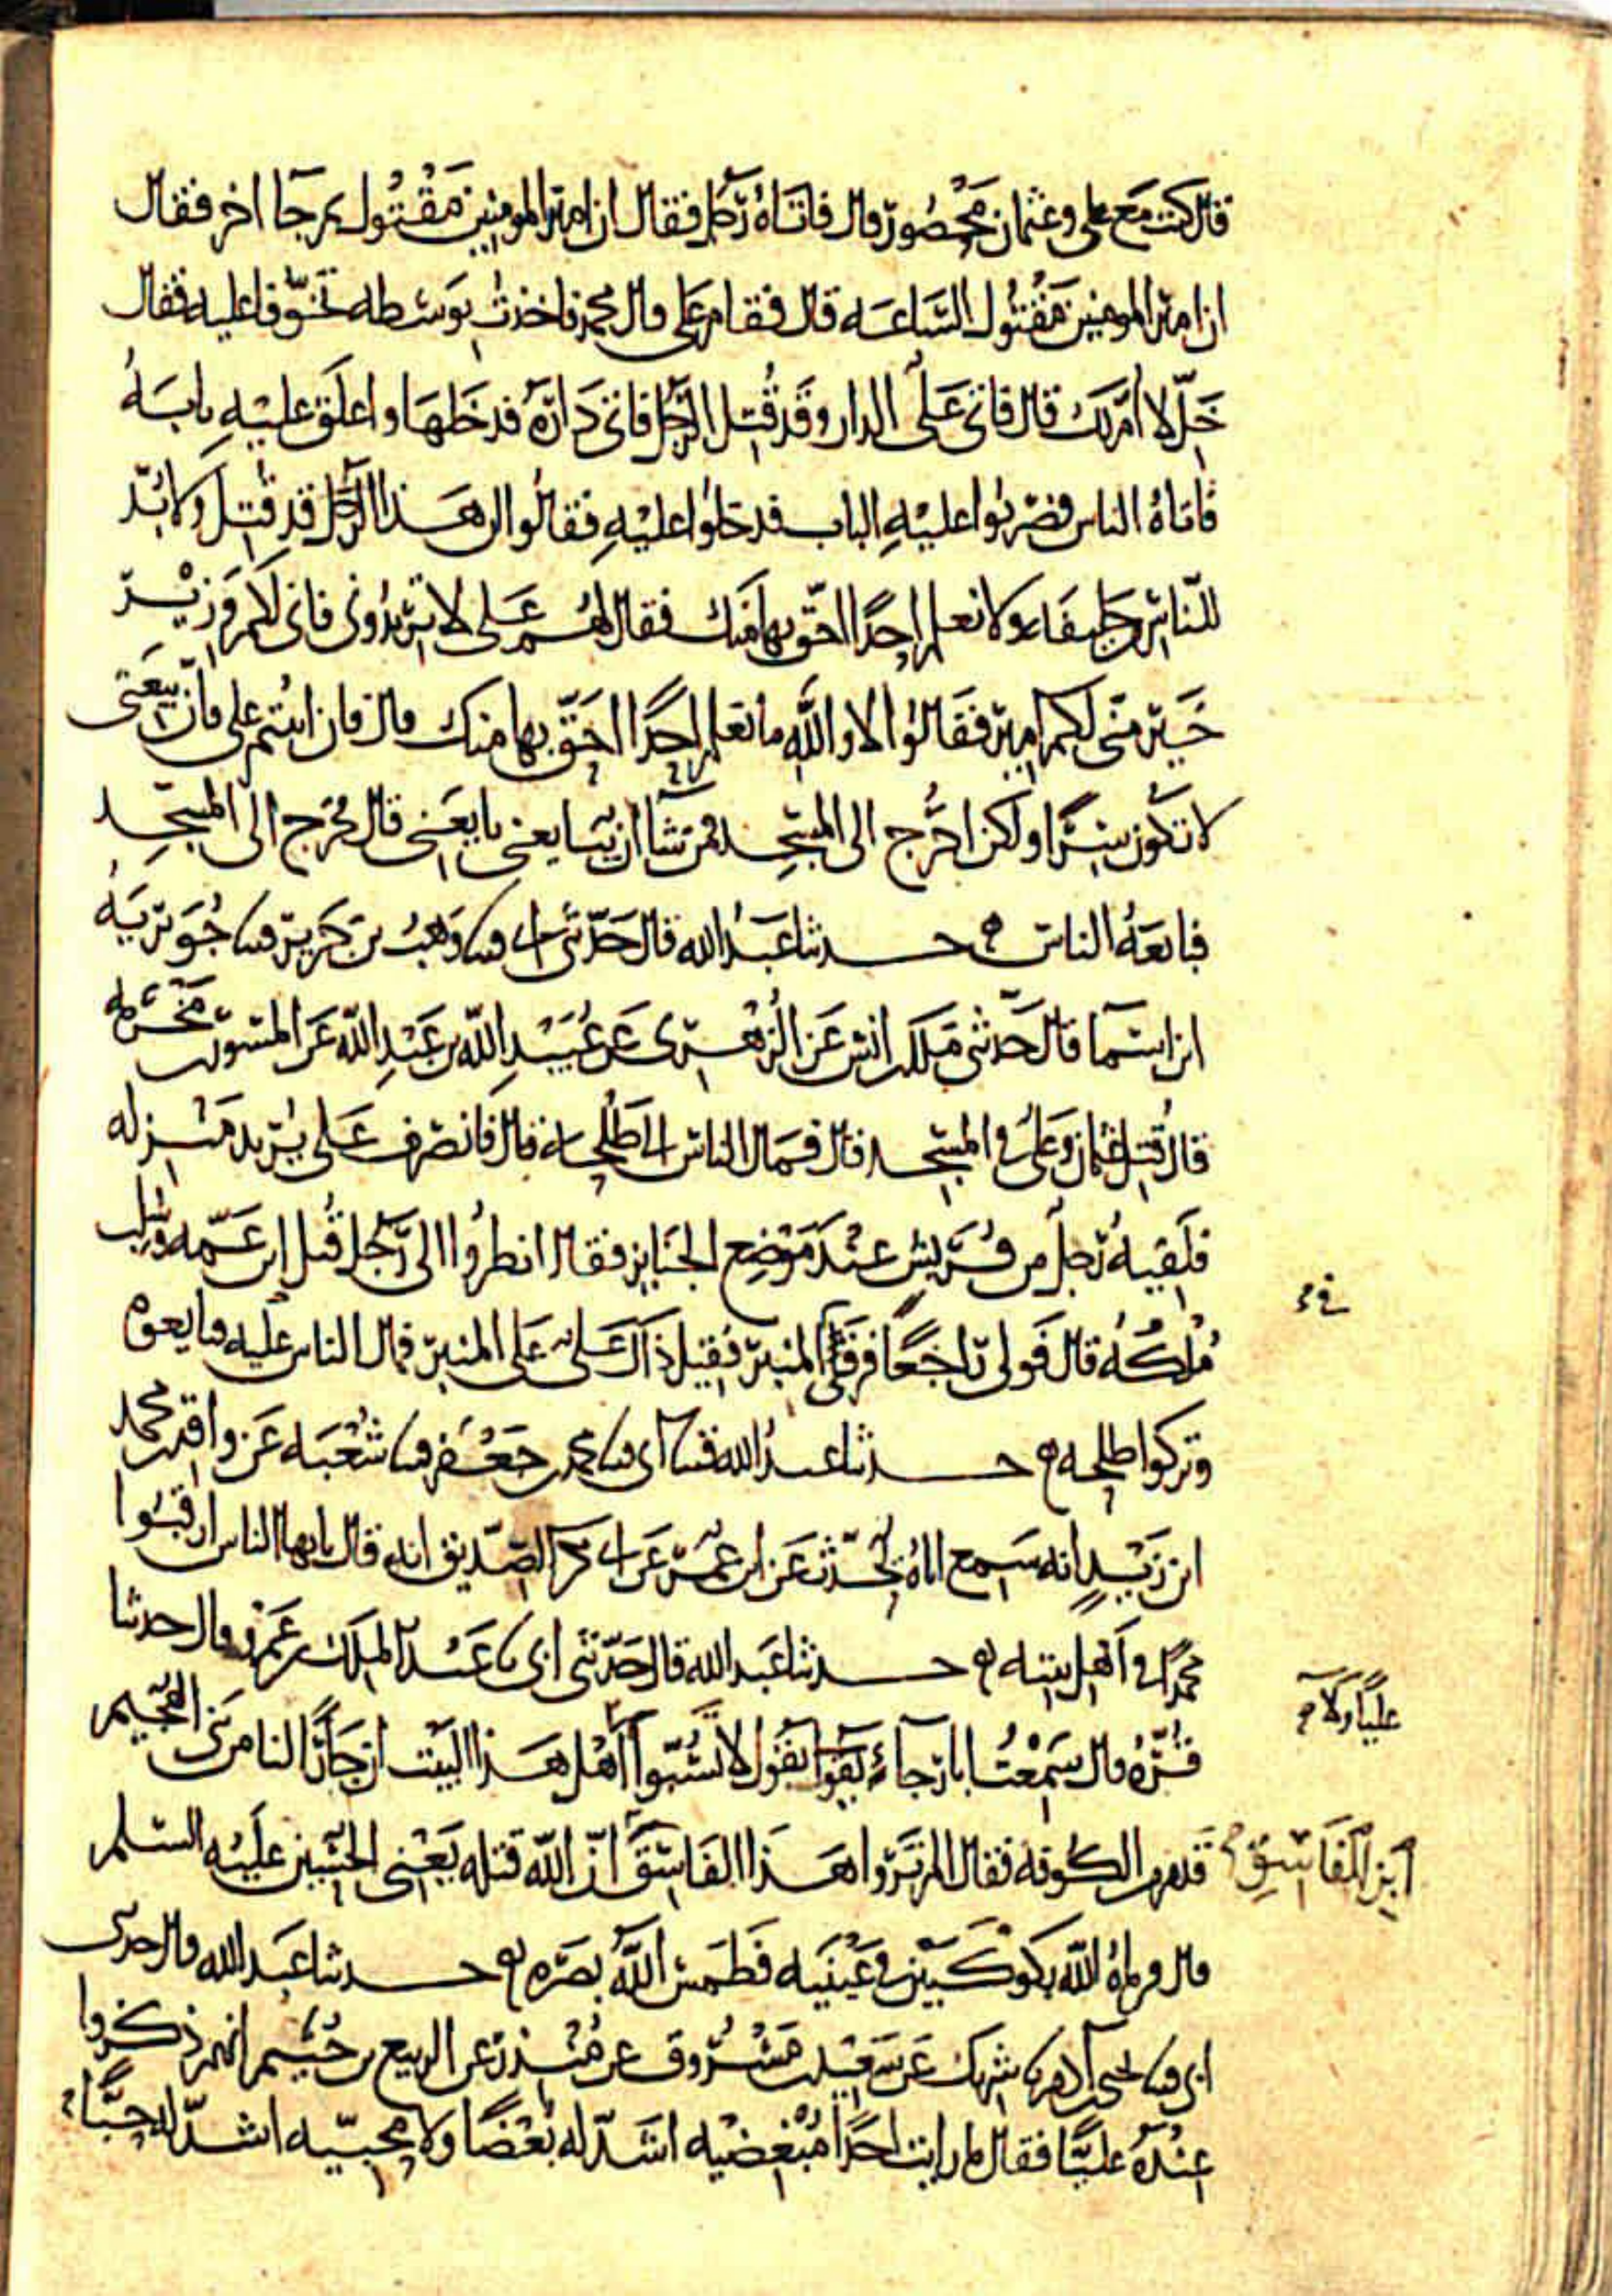 قال كنت مع على وعثمان محصور قال فاتاه رجل فقال ان امير المومنين مقتول ثم جا اخر فقال
ان امير المومنين مقتول الساعه قال فقام على قال محمد فاخذت بوسطه تخوفا عليه فقال
خل لا ام لك قال فاتى على الدار وقد قتل الرجل فاتى داره فدخلها واغلق عليه بابه
فاتاه الناس فضربوا عليه الباب فدخلوا عليه فقالوا ان هذا الرجل قد قتل ولا بد
للناس من خليفة ولا نعلم احدا احق بها منك فقال لهم على لا تريدونى فانى لكم وزير
خير منى لكم امير فقالوا لا والله ما نعلم احدا احق بها منك قال فان ابيتم على فان بيعتى
لا تكون سرا ولكن اخرج الى المسجد فمن شا ان يبايعنى بايعنى قال فخرج الى المسجد
فبايعه الناس حدثنا عبد الله قال حدثنى ابى قثنا وهب بن جرير قثنا جويريه
ابن اسما قال حدثنى ملك بن انس عن الزهرى عن عبيد الله بن عبد الله عن المسور بن مخرمه
قال قتل عثمان وعلى فى المسجد قال فمال الناس الى طلحه قال فانصرف على يريد منزله
فلقيه رجل من قريش عند موضع الجنايز فقال انظروا الى رجل قتل ابن عمه وسلب
ملكه قال فولى راجعا فرقى المنبر فقيل ذاك على على المنبر فمال الناس عليه فبايعوه
وتركوا طلحه حدثنا عبد الله قثنا ابى قثنا محمد بن جعفر قثنا شعبه عن واقد بن محمد
ابن زيد انه سمع اباه يحدث عن ابن عمر عن ابى بكر الصديق انه قال يايها الناس ارقبوا
محمدا فى اهل بيته حدثنا عبد الله قال حدثنى ابى نا عبد الملك بن عمرو قال حدثنا
قره قال سمعت ابا رجاء يقول لا تسبوا اهل هذا البيت ان جارا لنا من بنى الهجيم
عليا ولا
قدم من الكوفه فقال الم تروا هذا الفاسق ان الله قتله يعنى الحسين عليه السلم
ابن الفاسق
قال فرماه الله بكوكبين فى عينيه فطمس الله بصره حدثنا عبد الله قال حدثنى
ابى قثنا يحيى بن ادم نا شريك عن سعيد بن مسروق عن منذر عن الربيع بن خثيم انهم ذكروا
عنده عليا فقال ما رايت احدا مبغضيه اشد له بغضا ولا محبيه اشد له حبا